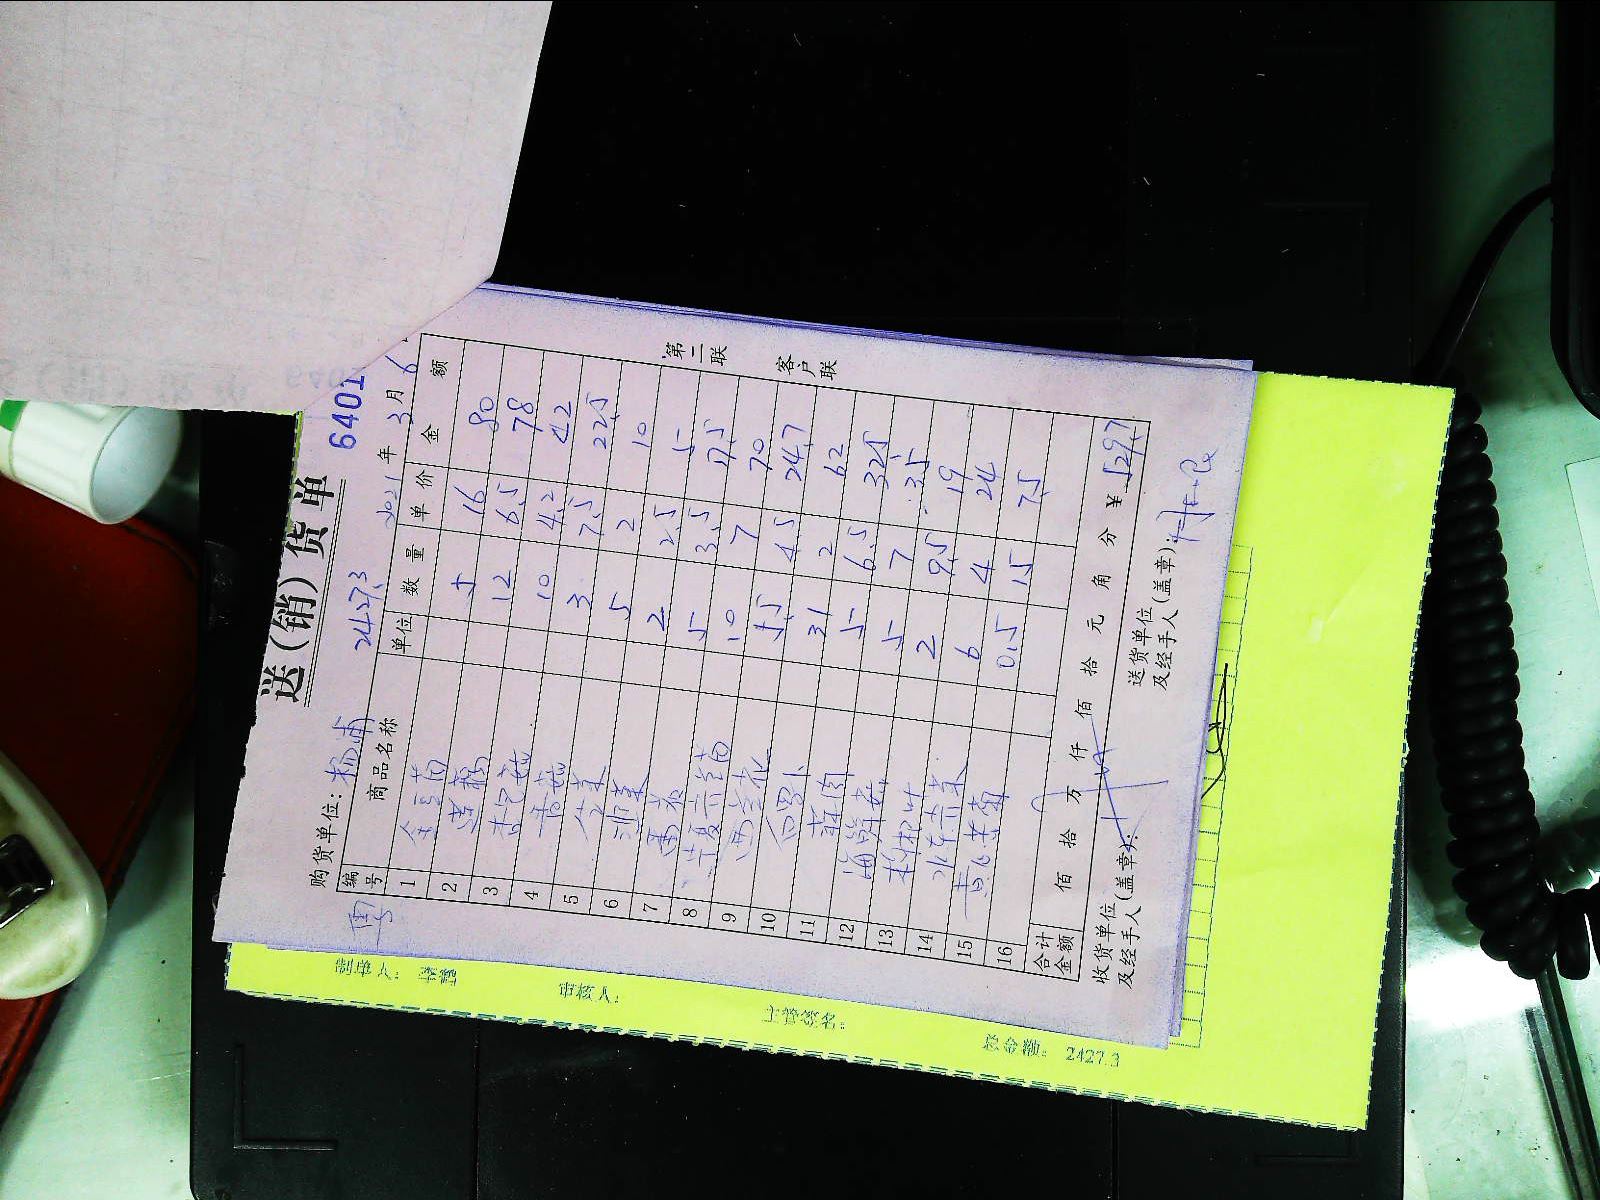 送(销)货单
6401
2427.3
购货单位:
2021年3月6
编号 商品名称 单位 数量 单价 金额
1 金豆苗 5 16 80
2 莲藕 12 6.5 78
3 杏鲍菇 10 4.2 42
4 香菇 3 7.5 22.5
5 5 2 10
6 2 2.5 5
7 5 3.5 17.5
8 10 7 70
9 西兰花 5.5 4.5 24.7
10 白罗卜 31 2 62
11 5 6.5 32.5
12 海鲜菇 5 7 35
13 2 9.5 19
14 6 4 24
15 0.5 15 7.5
16
合计金额 佰 拾 万 仟 佰 拾 元 角 分 ¥ 529.7
收货单位及经手人(盖章):
送货单位及经手人(盖章):
第二联 客户联
制单人:
审核人:
主管签名:
总金额: 2427.3